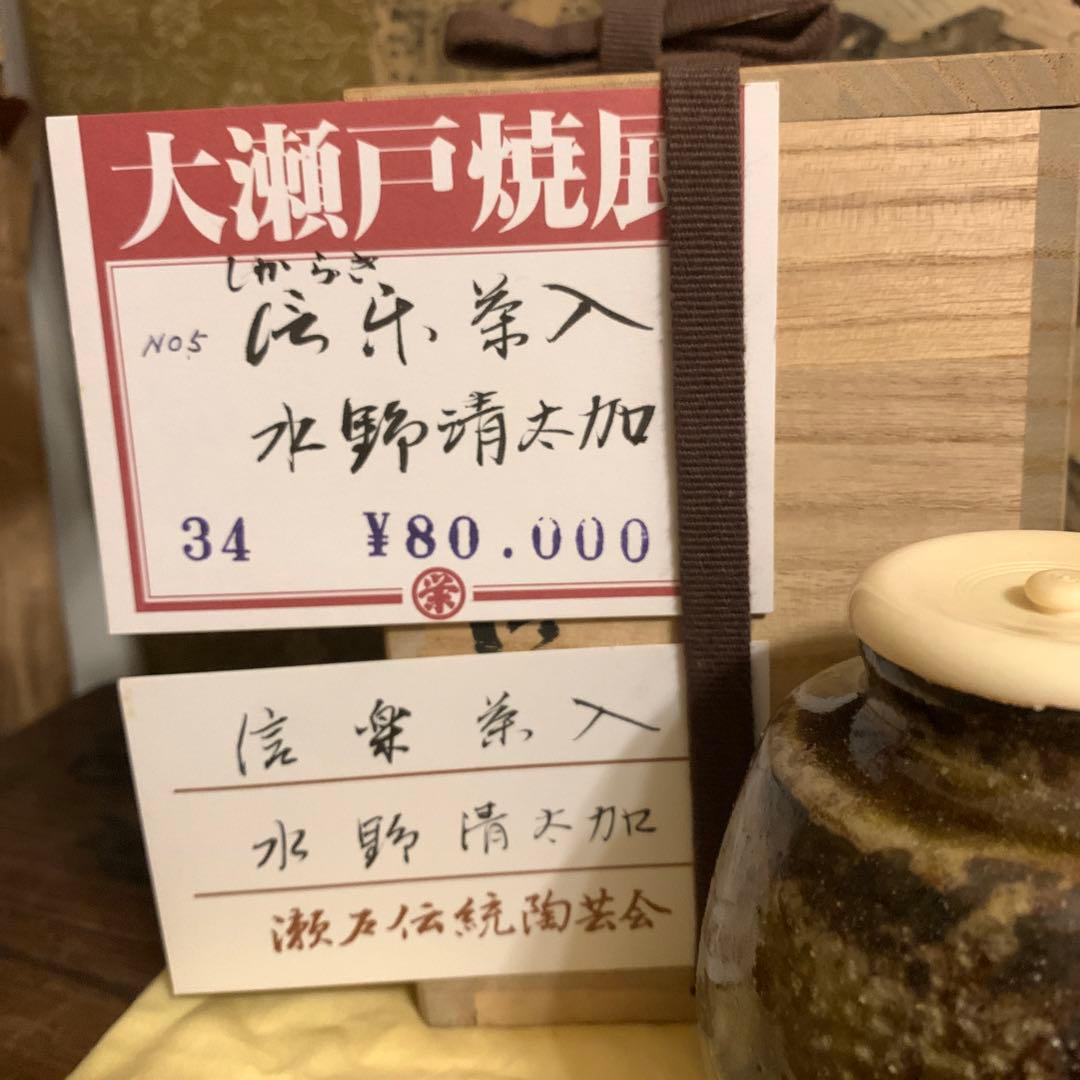 大瀬戸焼展
しがらき
NO5 信楽茶入
水野清太加
34 ¥80.000
栄
信楽茶入
水野清太加
瀬戸伝統陶芸会